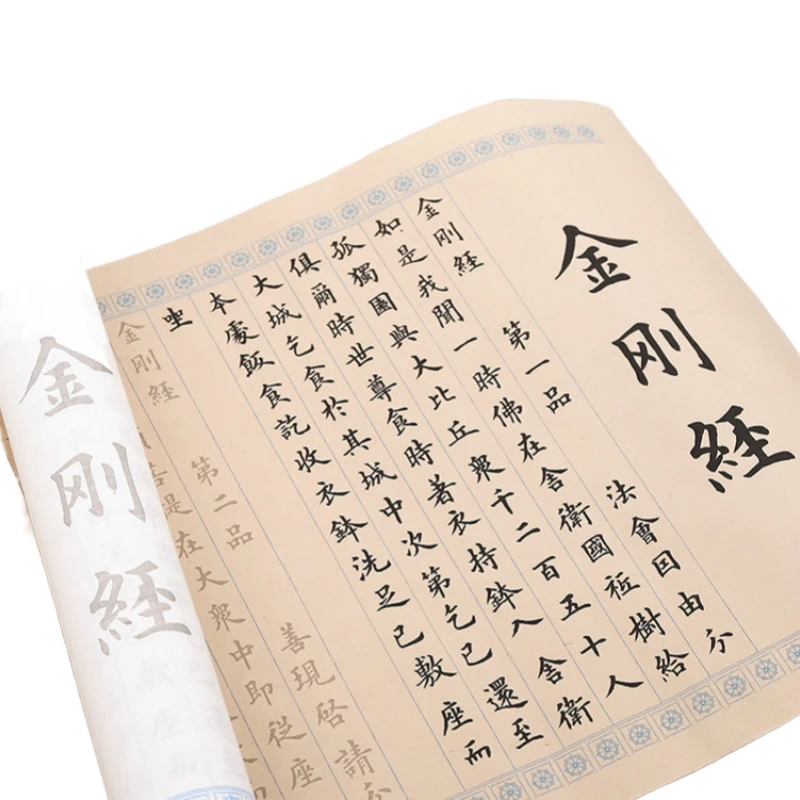 金刚經
金剛經 第一品 法會因由分
如是我聞一時佛在舍衛國祇樹給
孤獨園與大比丘衆千二百五十人
俱爾時世尊食時著衣持鉢入舍衛
大城乞食於其城中次第乞已還至
本處飯食訖收衣鉢洗足已敷座而
坐
金剛經 第二品 善現啓請分
菩提在大衆中即從座
金刚經